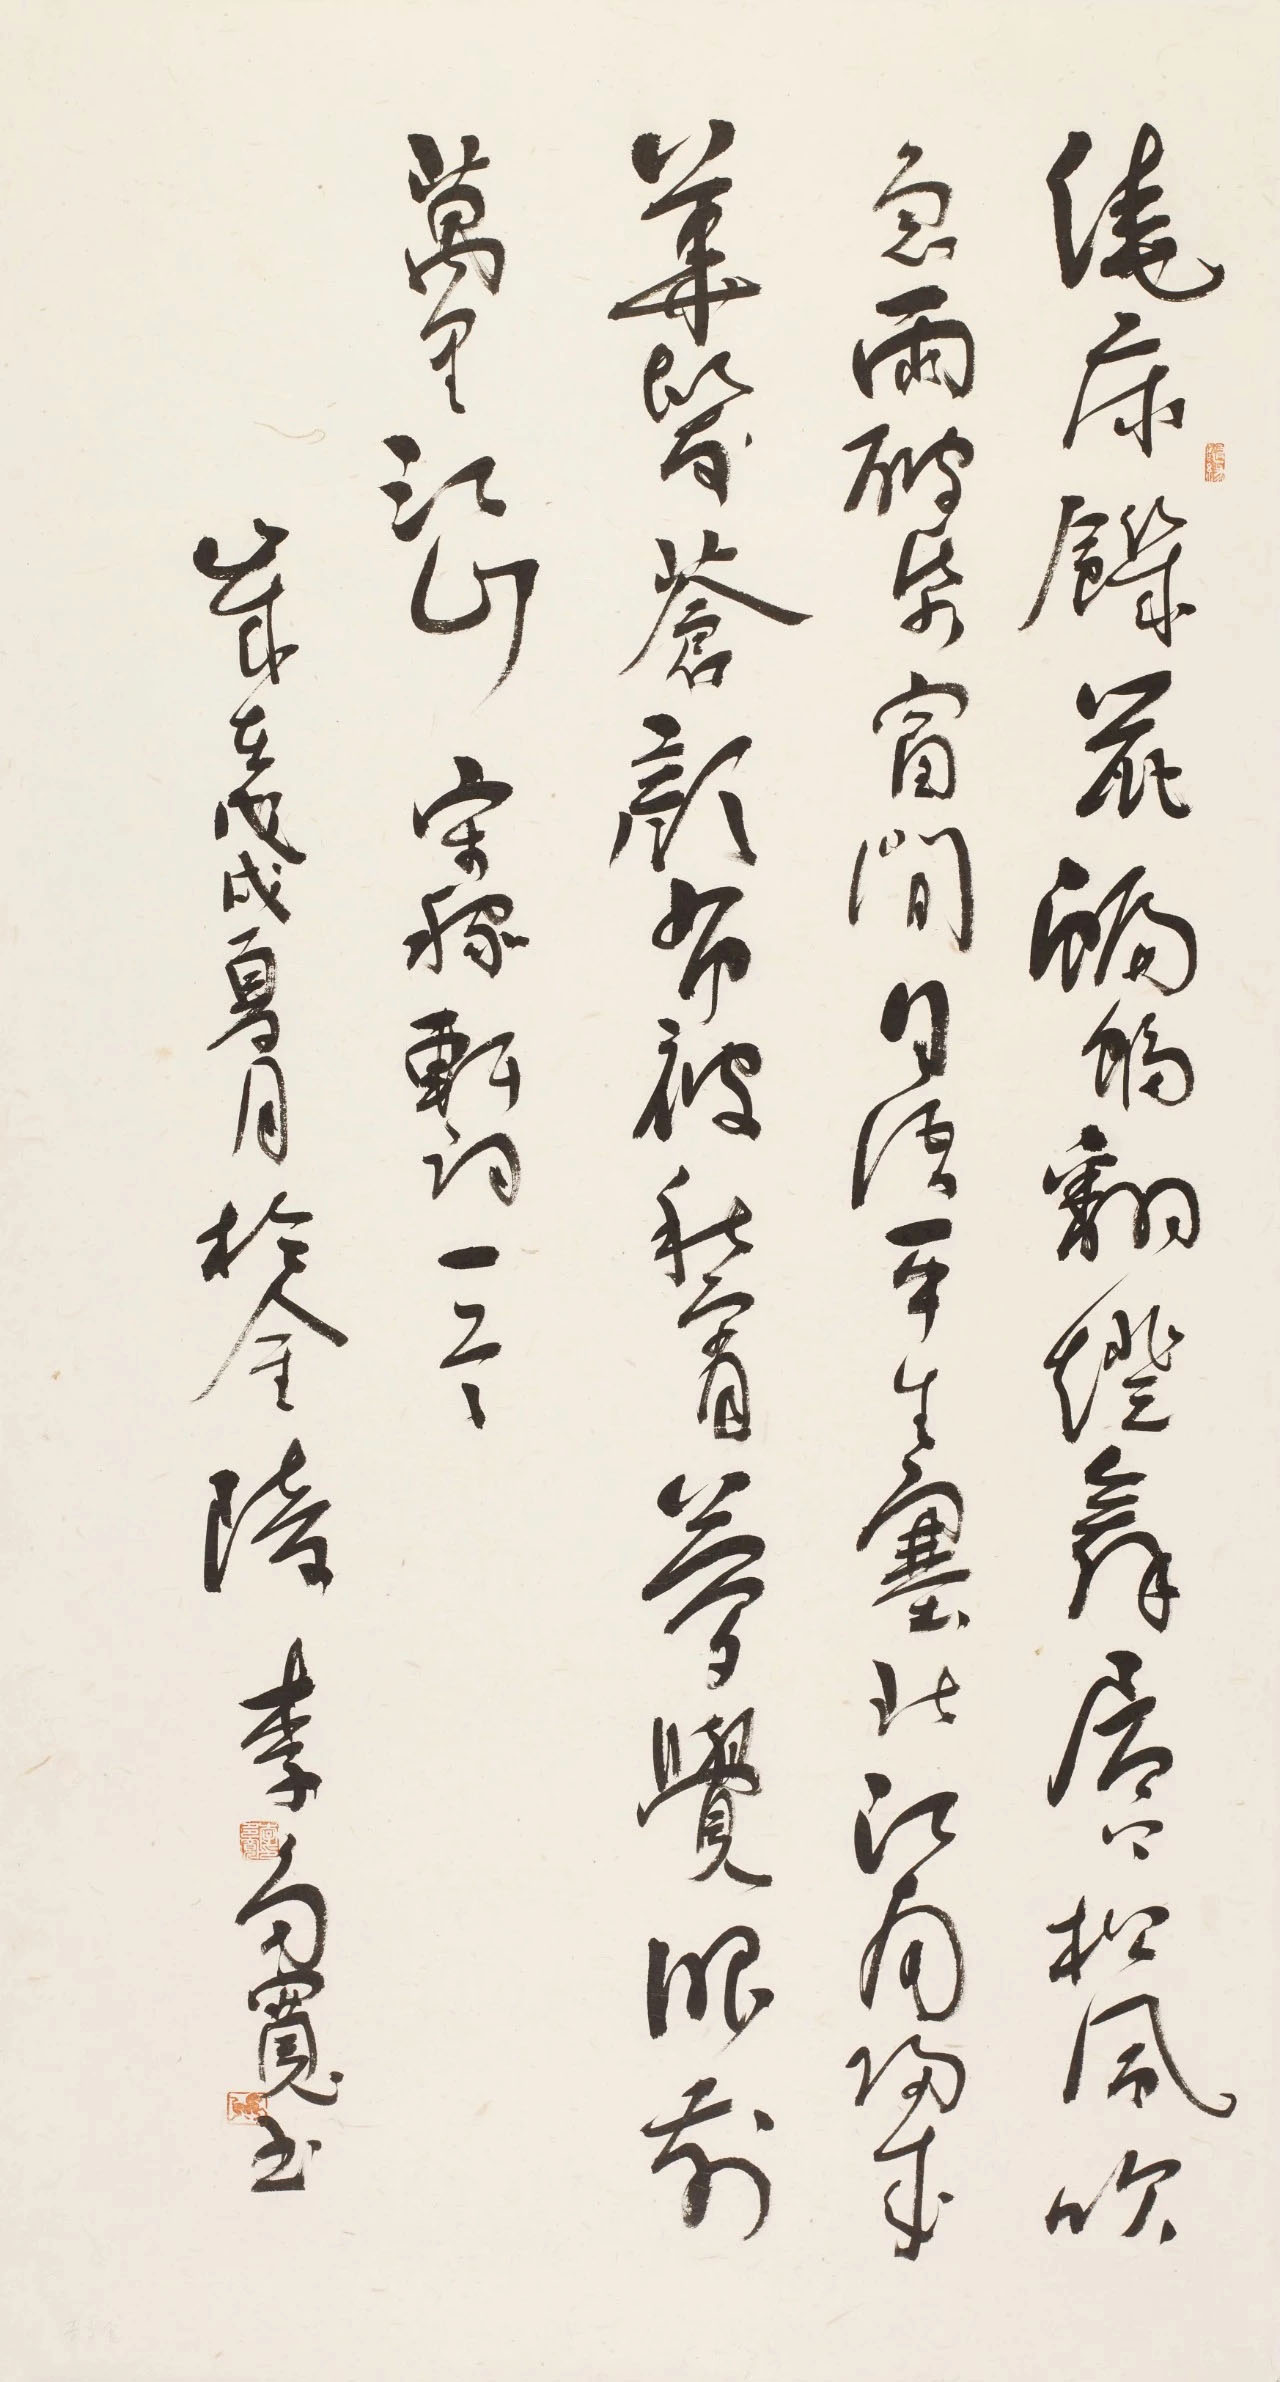 繞床饑鼠蝙蝠翻燈舞屋上松風吹
急雨破紙窗間自語平生塞北江南歸來
華髮蒼顏布被秋宵夢覺眼前
萬里江山 宋稼軒詞一首
歲在戊戌夏月於金陵 李寬書